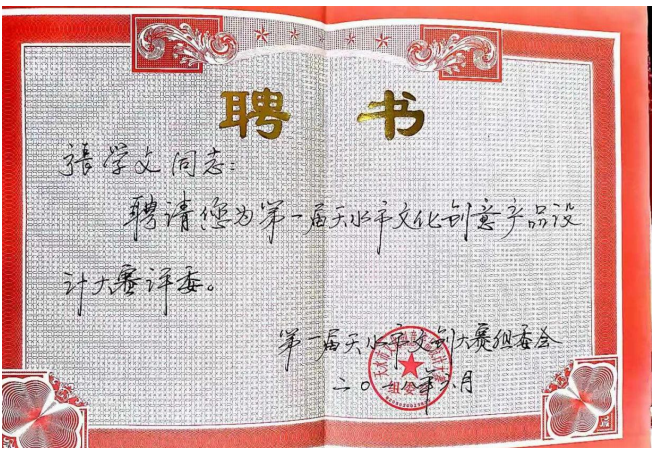 聘 书
張学文同志：
聘请您为第一届天水市文化创意产品设
计大赛评委。
第一届天水市文创大赛组委会
二〇一八年六月
组委会